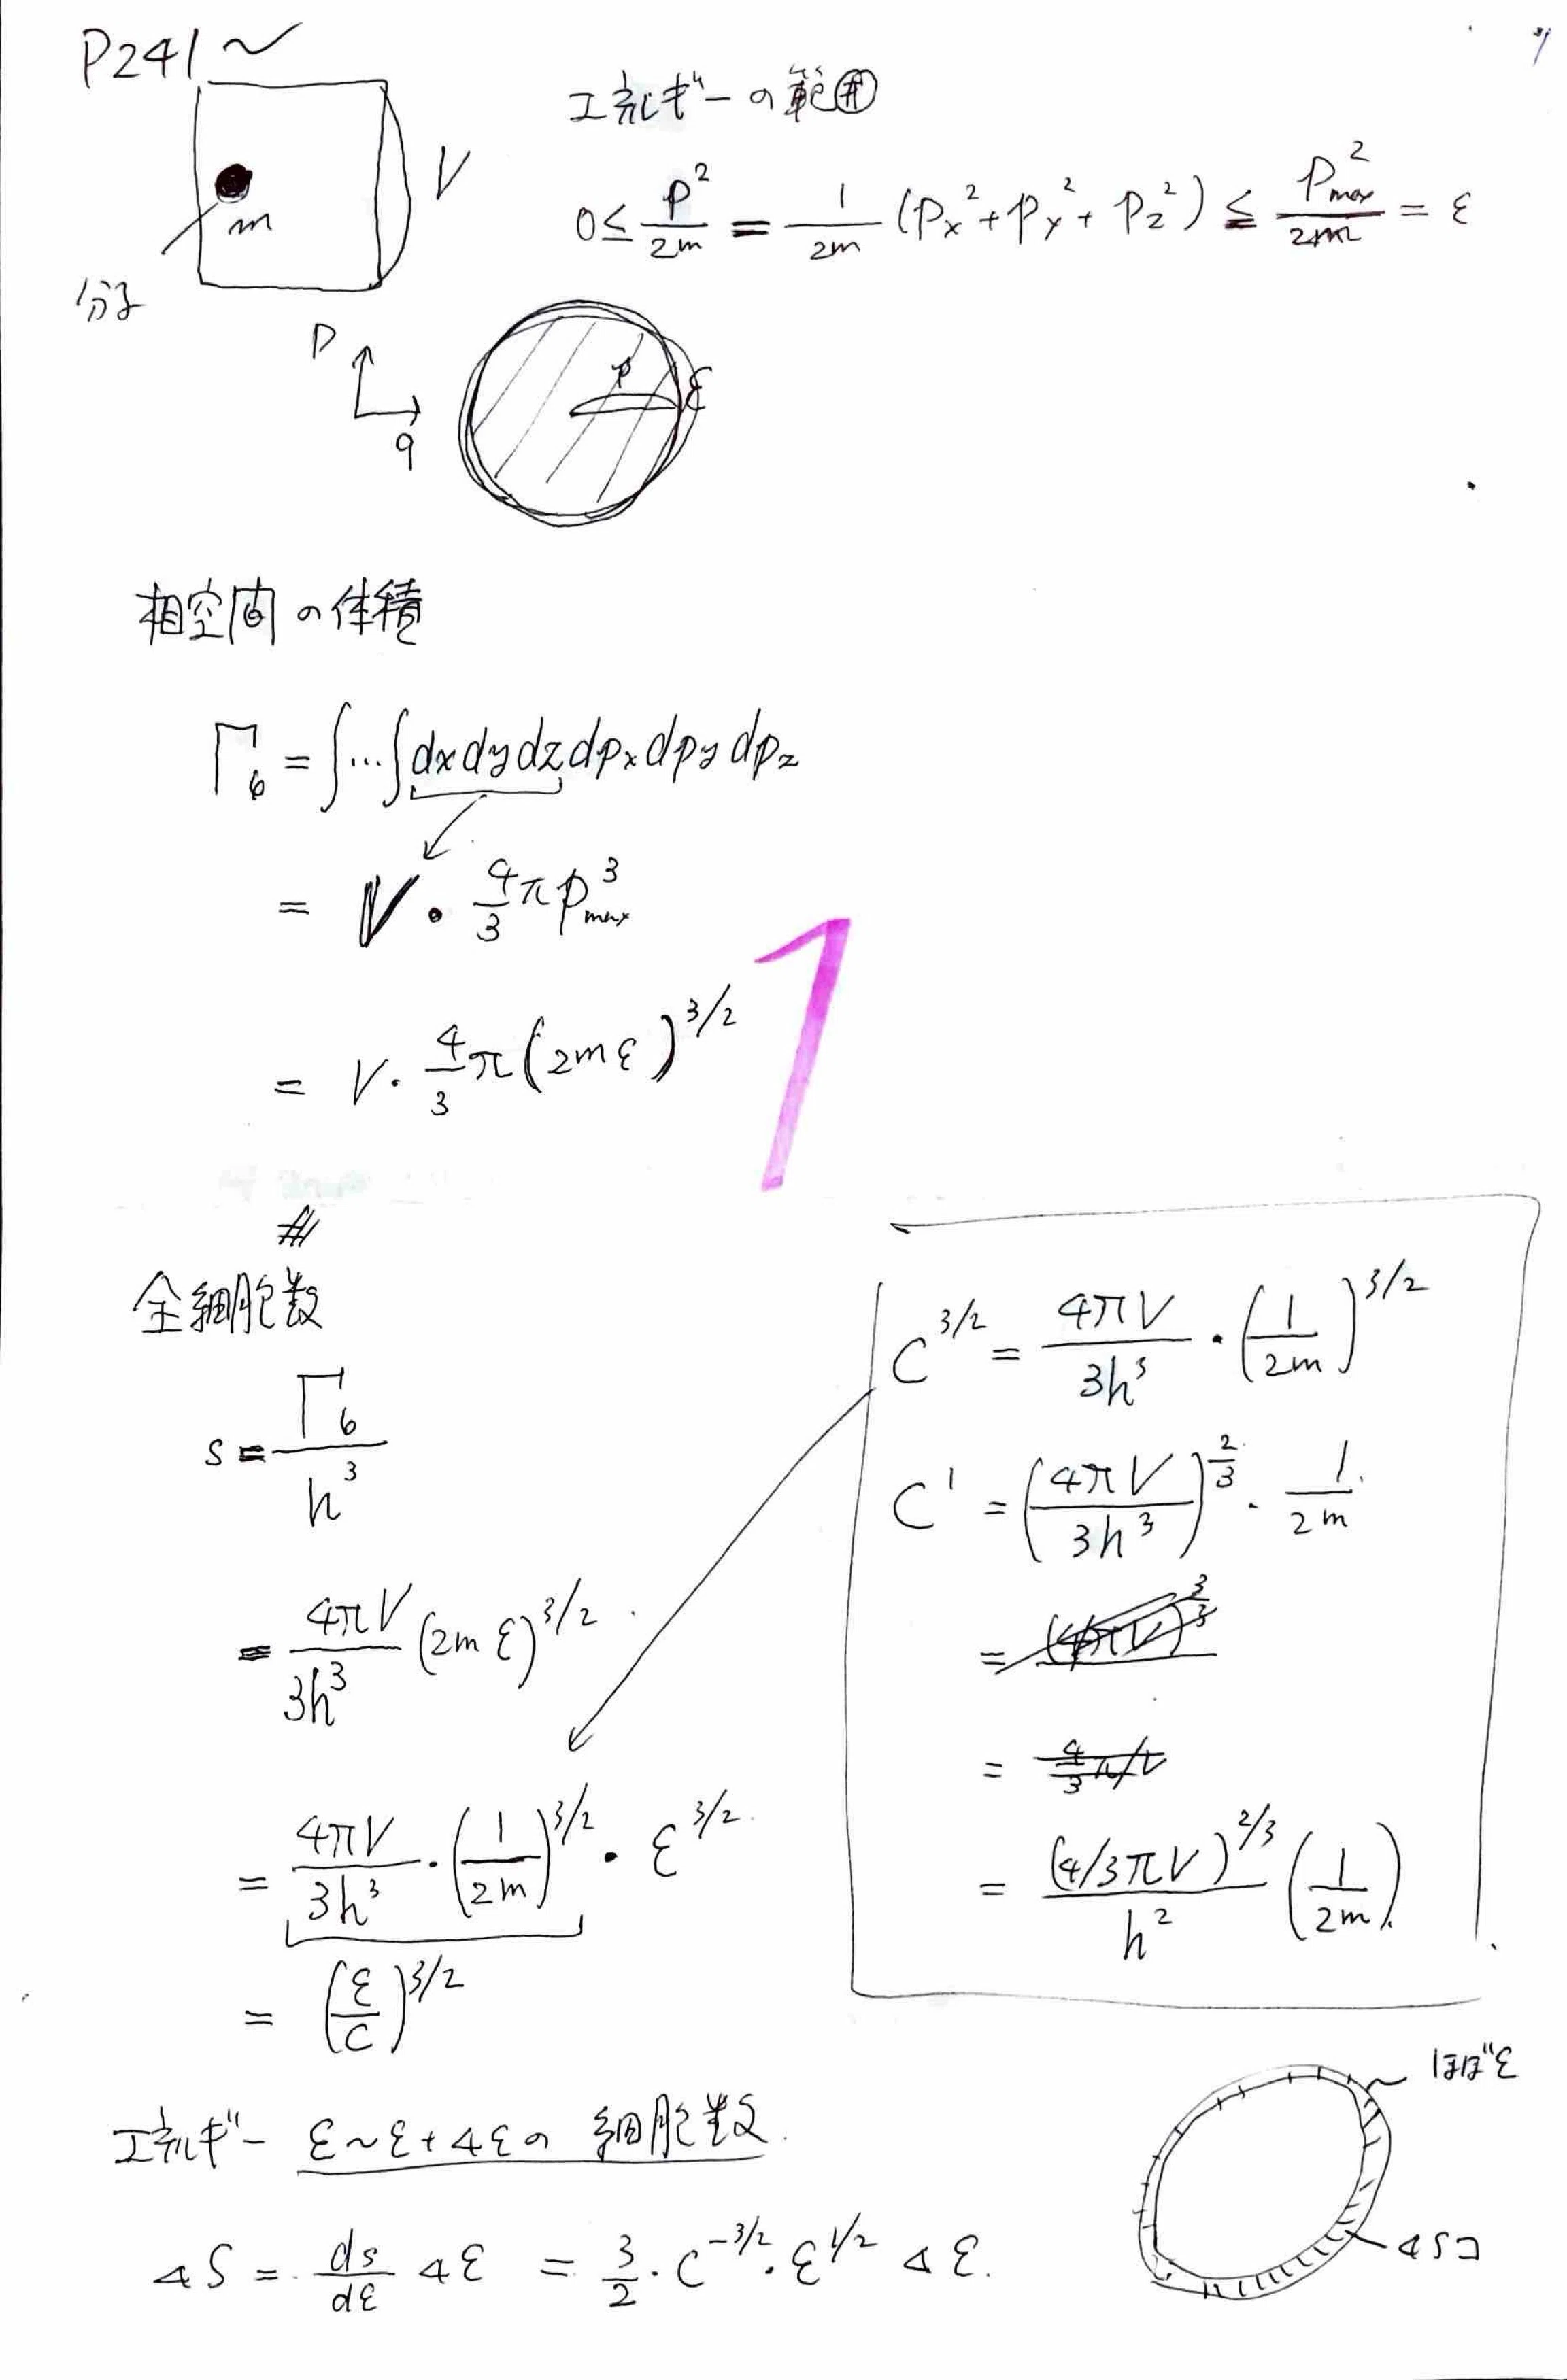 P241〜
V
m
分子
エネルギーの範囲
0≤ p²/2m = 1/2m (px²+py²+pz²) ≤ pmax²/2m = ε
p
q
p
ε
相空間の体積
Γ6 = ∫…∫dxdydzdpxdpydpz
= V・4/3 π pmax³
= V・4/3 π (2mε)^3/2
1
全細胞数
s = Γ6/h³
= 4πV/3h³ (2mε)^3/2
= 4πV/3h³・(1/2m)^3/2・ε^3/2
= (ε/C)^3/2
C^3/2 = 4πV/3h³・(1/2m)^3/2
C^1 = (4πV/3h³)^2/3・1/2m
=
=
= (4/3πV)^2/3/h² (1/2m)
エネルギー ε〜ε+Δεの 細胞数
ΔS = ds/dε Δε = 3/2・C^-3/2・ε^1/2 Δε.
ほぼε
ΔSコ